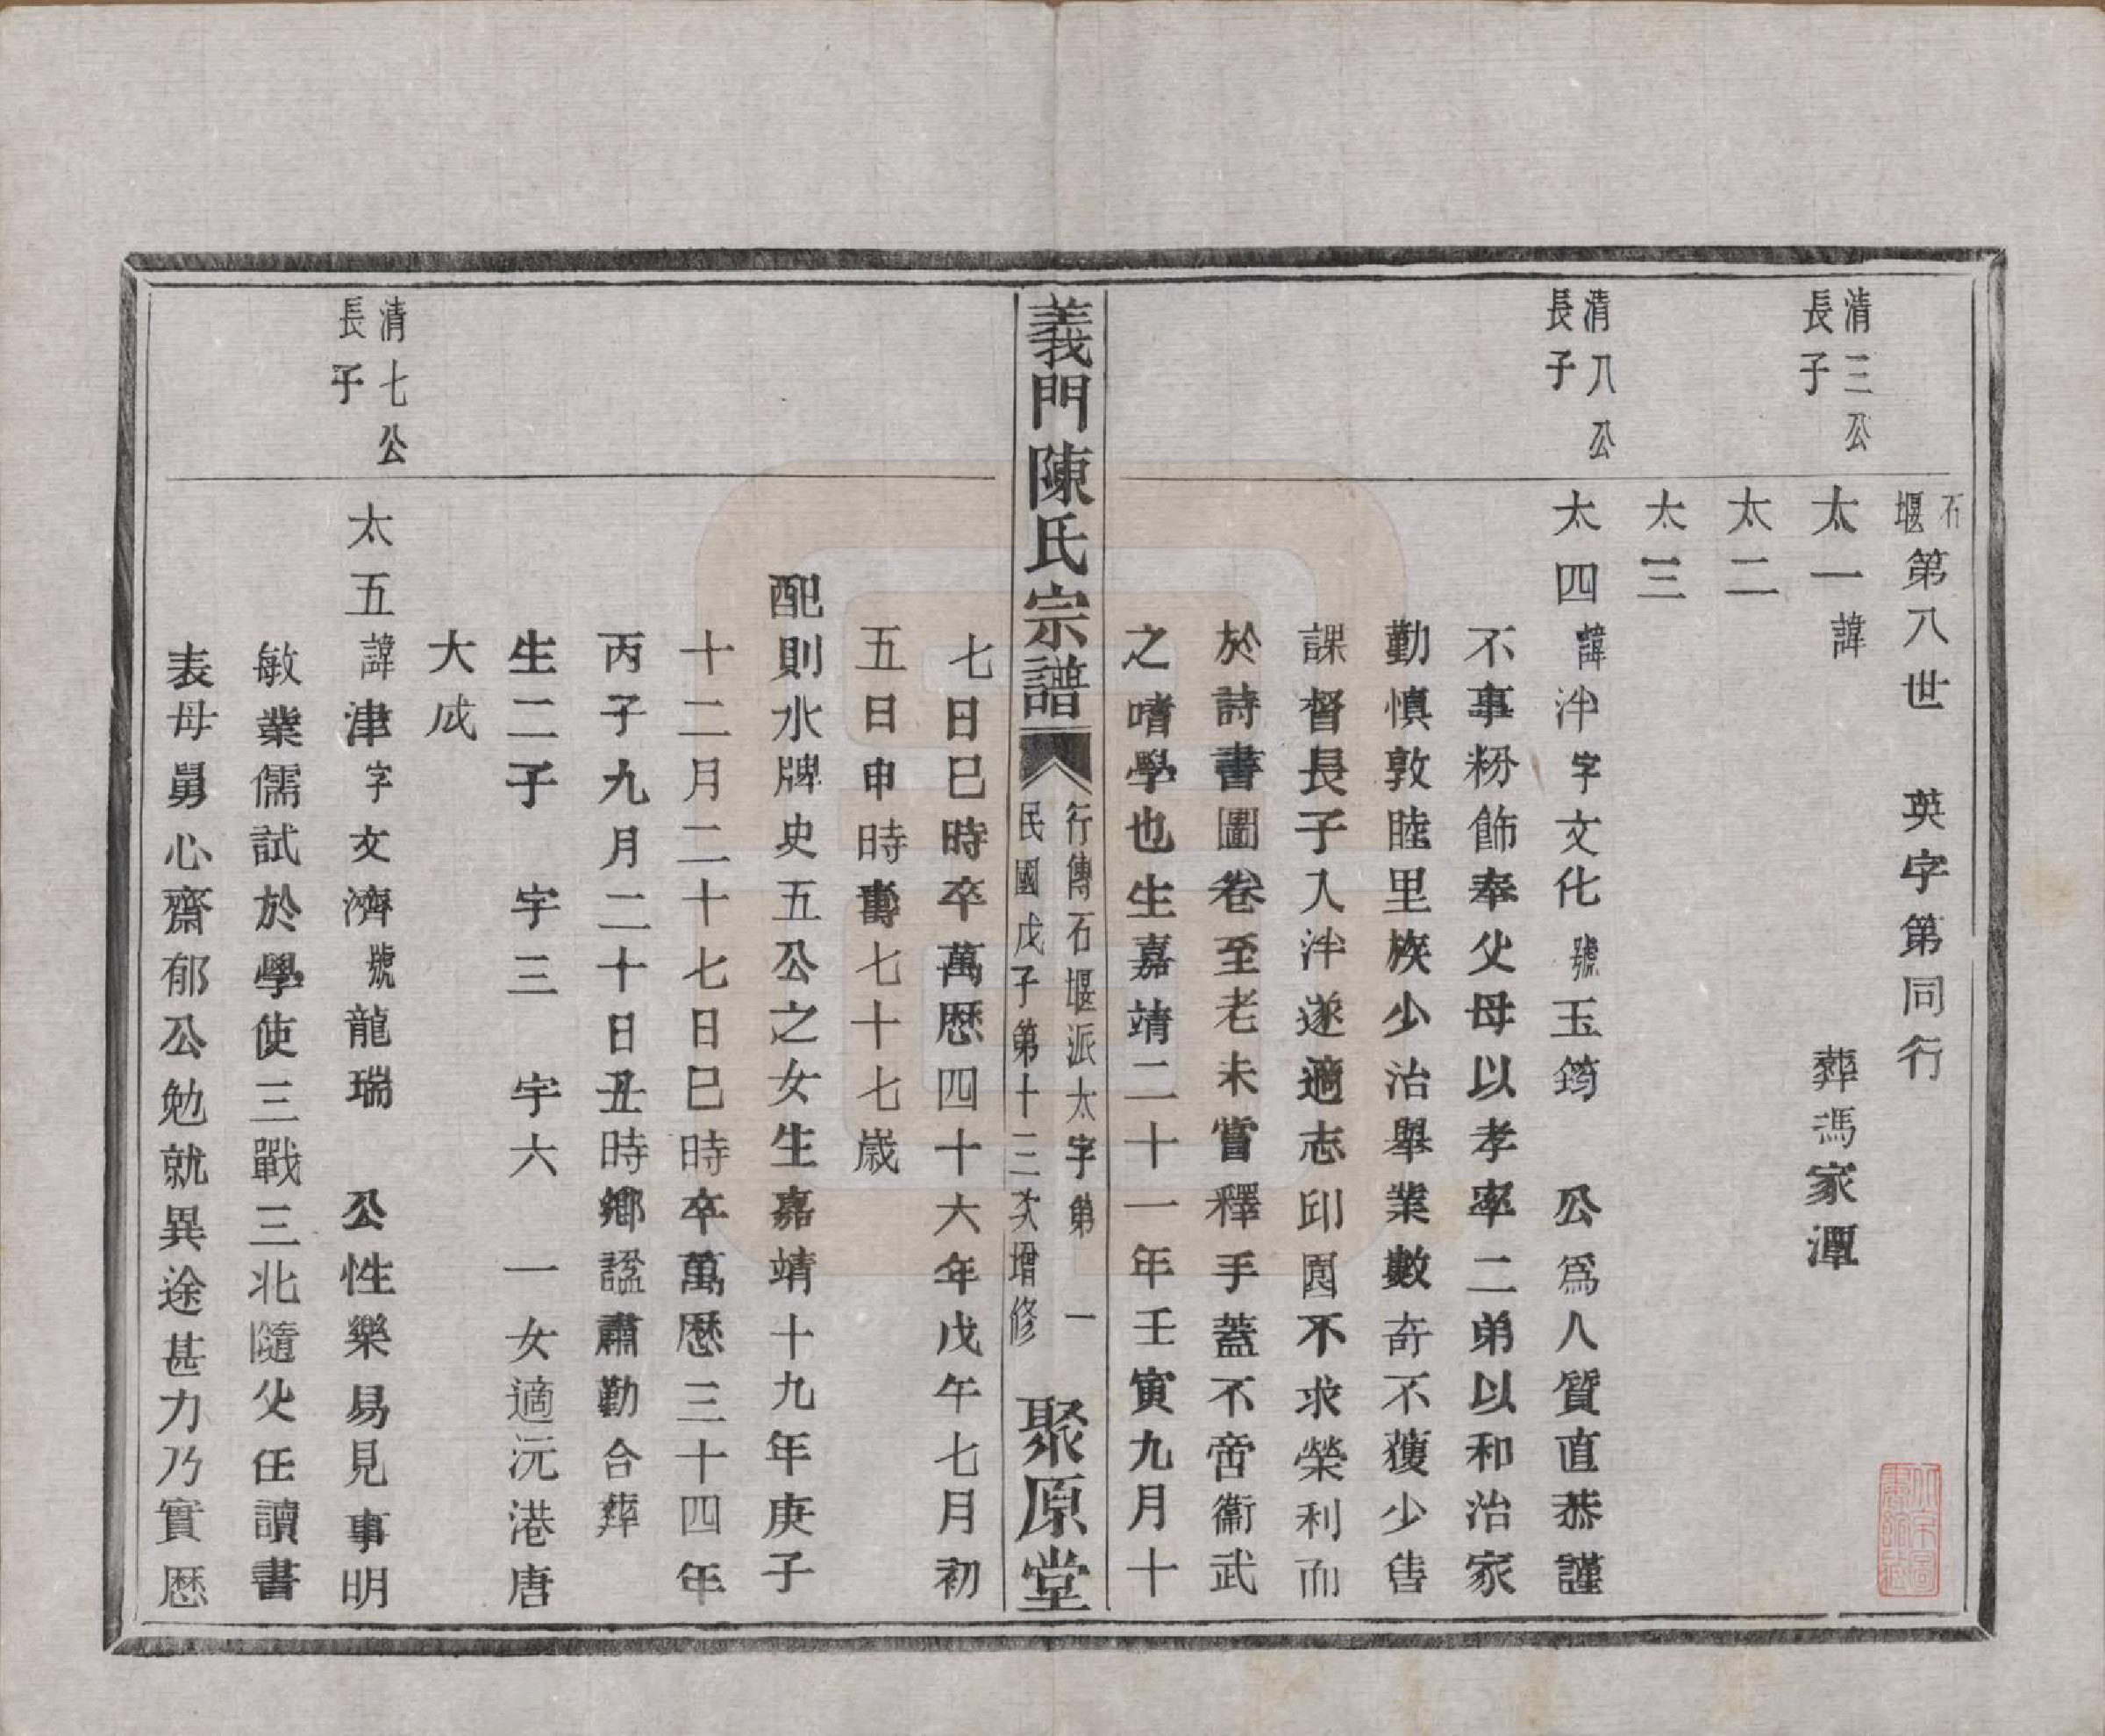 石堰第八世 英字第同行
清三公長子
太一諱 葬馮家潭
太二
太三
清八公長子
太四諱泮字文化號玉筠 公爲人質直恭謹
不事粉飾奉父母以孝率二弟以和治家
勤慎敦睦里族少治舉業數奇不獲少售
課督長子入泮遂適志邱園不求榮利而
於詩書圖卷至老未嘗釋手蓋不啻衞武
之嗜學也生嘉靖二十一年壬寅九月十
義門陳氏宗譜
行傳石堰派太字第 一
民國戊子第十三次增修
聚原堂
七日巳時卒萬歷四十六年戊午七月初
五日申時壽七十七歲
配則水牌史五公之女生嘉靖十九年庚子
十二月二十七日巳時卒萬歷三十四年
丙子九月二十日丑時鄉諡肅勤合葬
生二子 宇三 宇六 一女適沅港唐
大成
清七公長子
太五諱津字文濟號龍瑞 公性樂易見事明
敏業儒試於學使三戰三北隨父任讀書
表母舅心齋郁公勉就異途甚力乃實歷